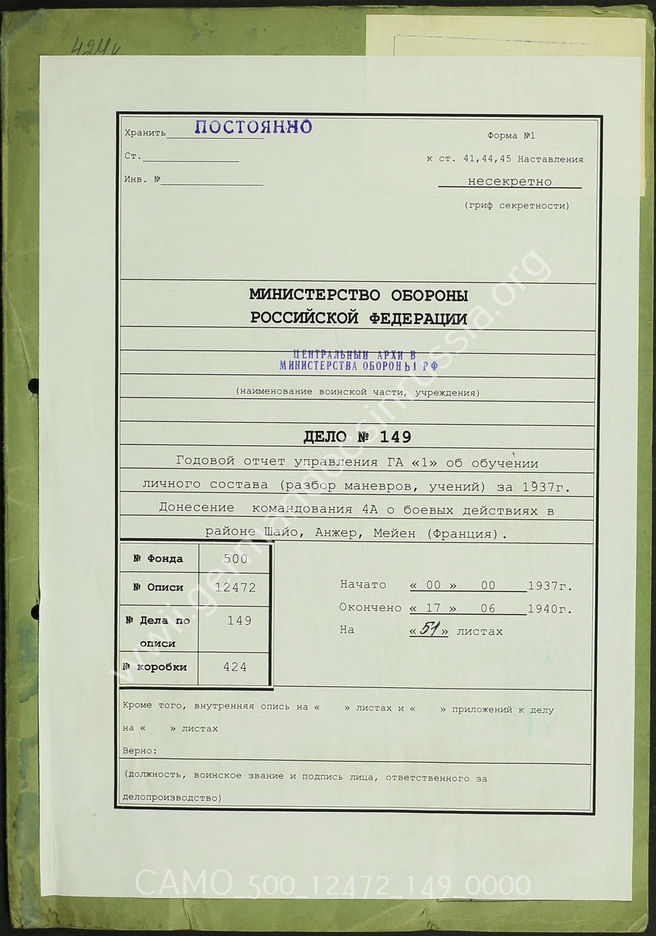 424к
Хранить ПОСТОЯННО
Форма №1
Ст.
к ст. 41,44,45 Наставления
Инв. №
несекретно
(гриф секретности)
МИНИСТЕРСТВО ОБОРОНЫ
РОССИЙСКОЙ ФЕДЕРАЦИИ
ЦЕНТРАЛЬНЫЙ АРХИВ
МИНИСТЕРСТВА ОБОРОНЫ РФ
(наименование воинской части, учреждения)
ДЕЛО № 149
Годовой отчет управления ГА «1» об обучении
личного состава (разбор маневров, учений) за 1937г.
Донесение командования 4А о боевых действиях в
районе Шайо, Анжер, Мейен (Франция).
№ Фонда 500
№ Описи 12472
№ Дела по описи 149
№ коробки 424
Начато « 00 » 00 1937г.
Окончено « 17 » 06 1940г.
На «51» листах
Кроме того, внутренняя опись на « » листах и « » приложений к делу
на « » листах
Верно:
(должность, воинское звание и подпись лица, ответственного за
делопроизводство)
CAMO_500_12472_149_0000